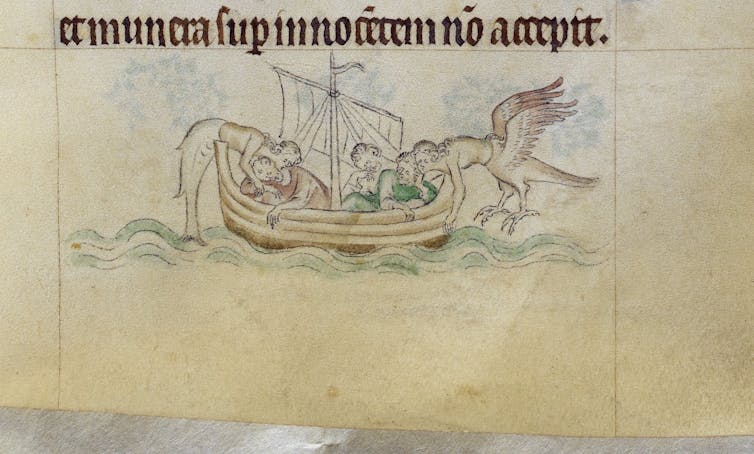 et munera sup innocẽtem nõ accepit.